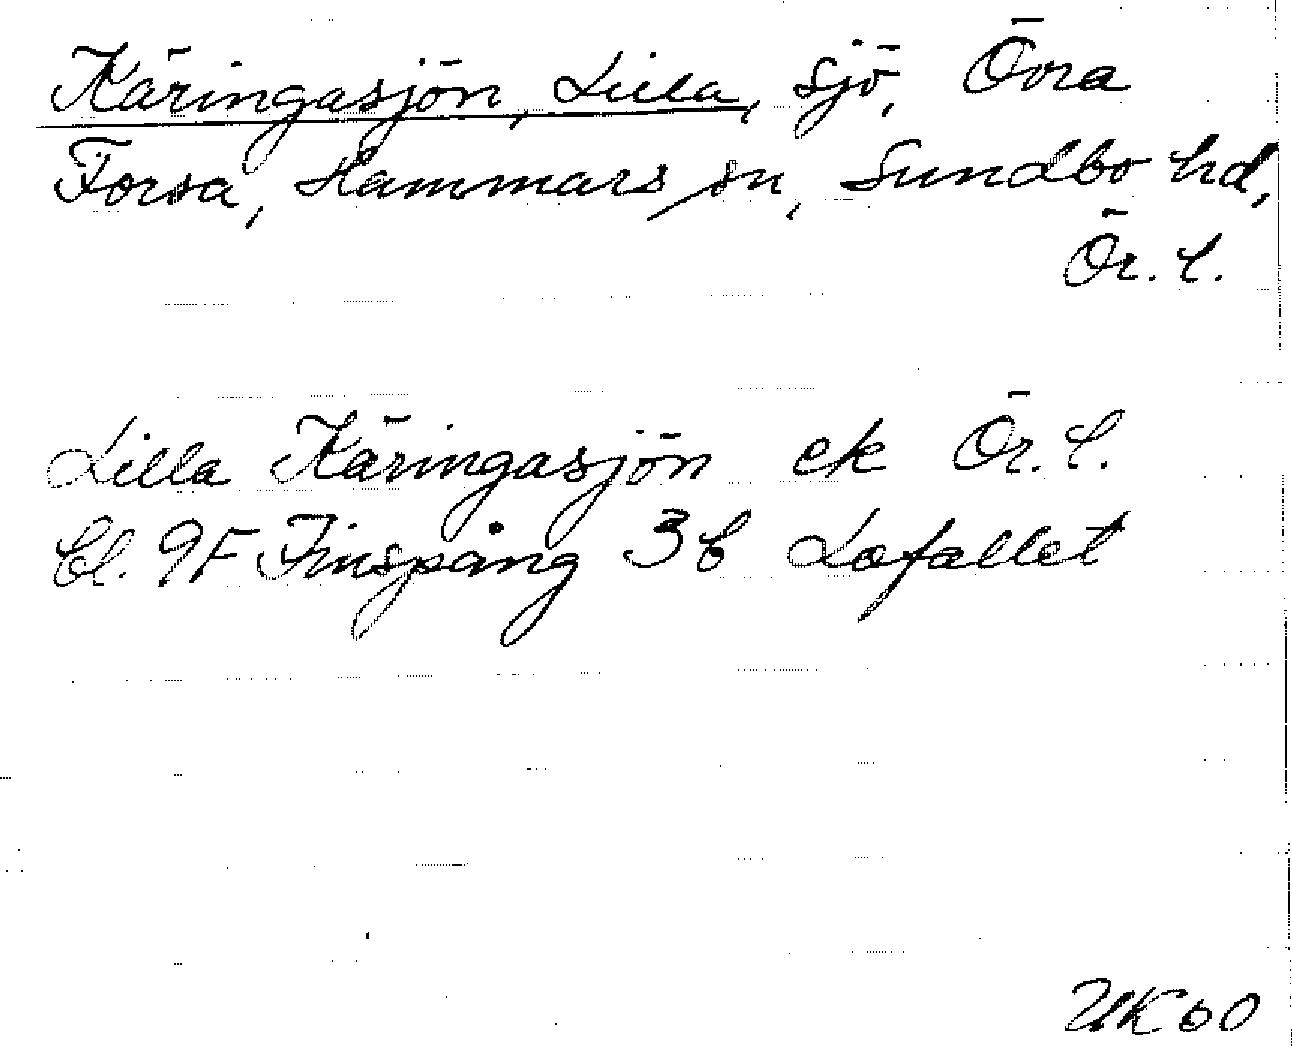 Käringasjön, Lilla, sjö, Övra
Forsa, Hammars sn, Sundbo hd,
Ör. l.
Lilla Käringasjön ek Ör. l.
bl. 9F Finspång 3b Lofallet
UK60